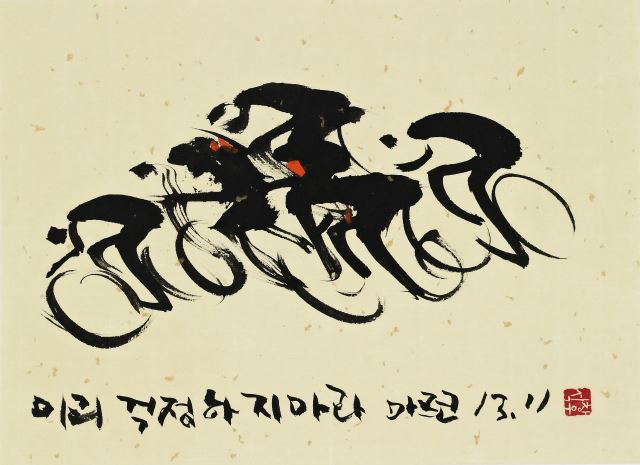 미리 걱정하지마라 마르코 13.11